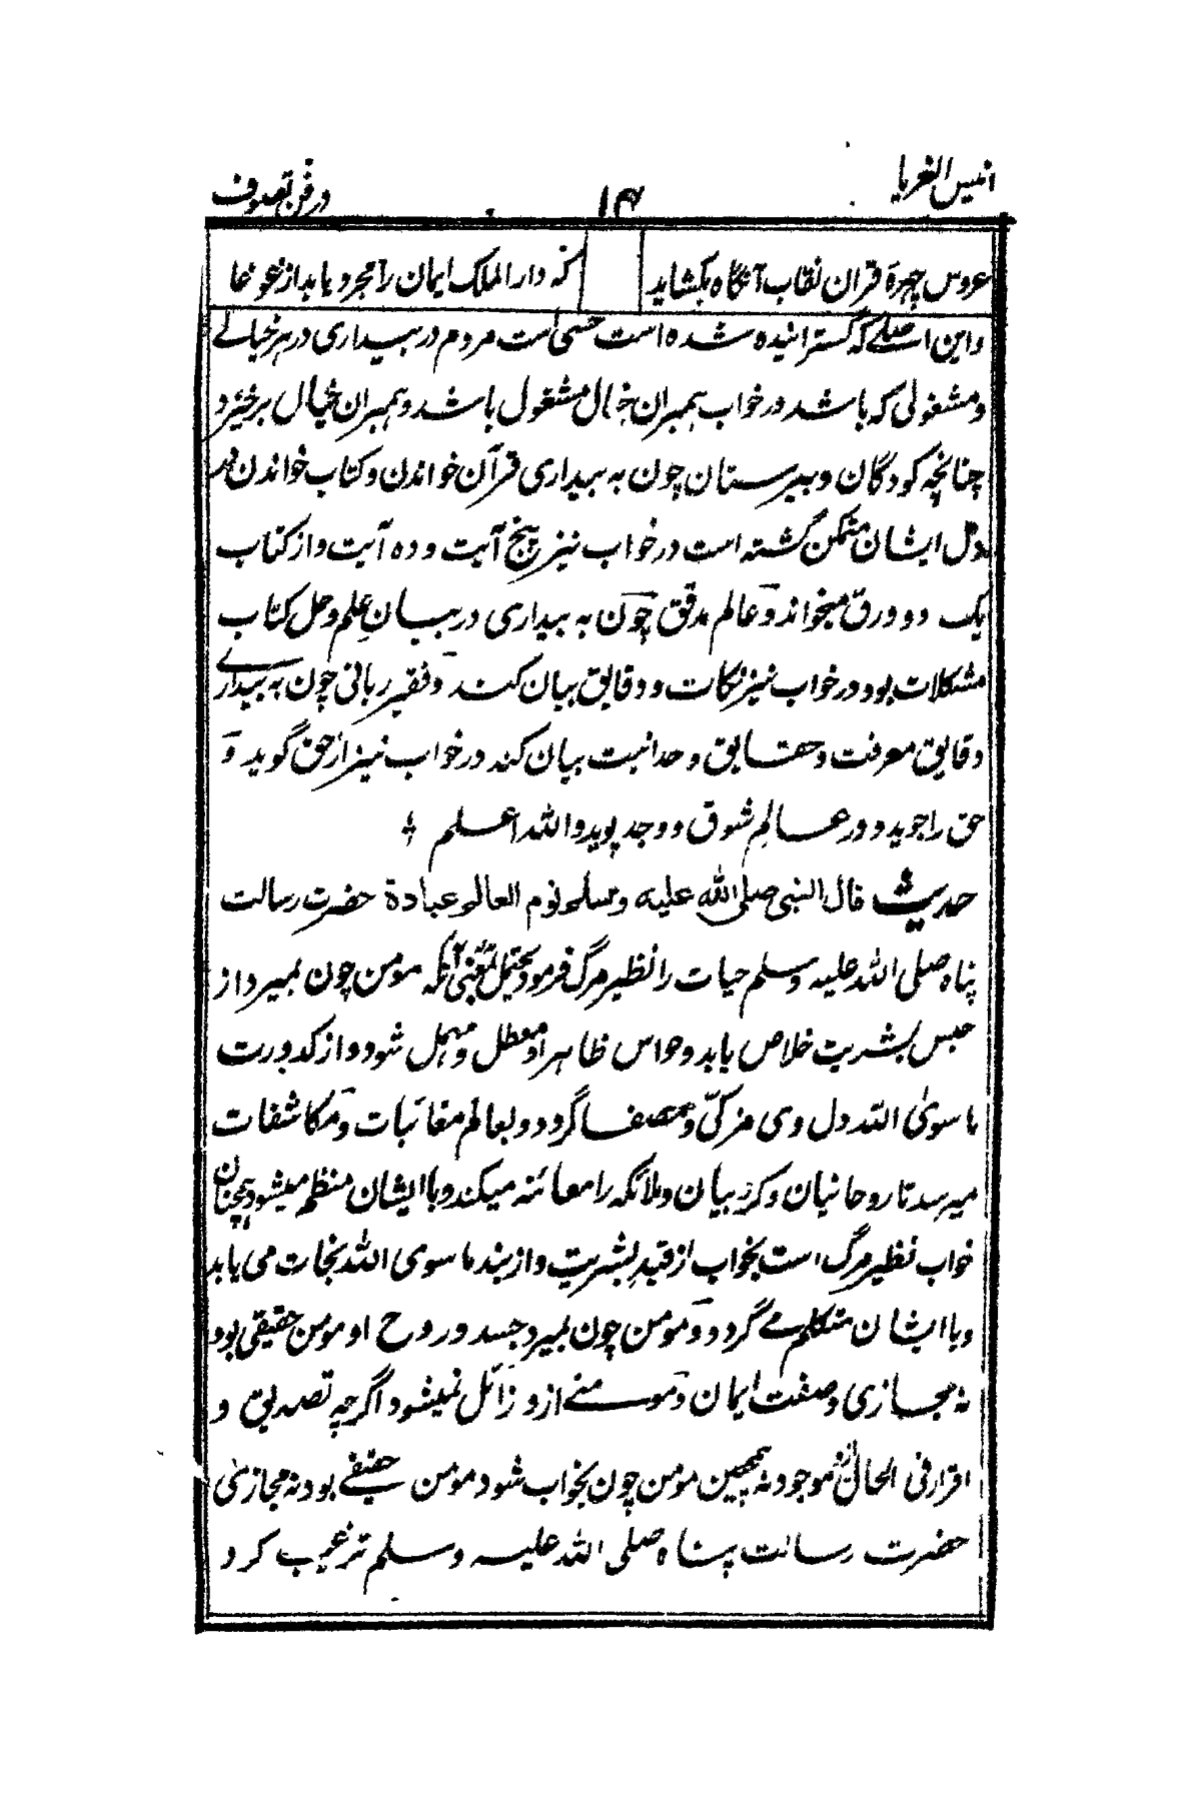 انیس الغربا
۱۴
در فن تصوف
عروس چهرهٔ قران نقاب آنگاه بکشاید
که دار الملک ایمان را مجرد یابد از غوغا
و این اصلے که گسترانیده شده است حسی است مردم در بیداری در هر خیالے
و مشغولی که باشد در خواب همبران خیال مشغول باشد و همبران خیال برخیزد
چنانچه کودگان دبیرستان چون به بیداری قرآن خواندن و کتاب خواندن در
دل ایشان متمکن گشته است در خواب نیز پنج آیت و ده آیت و از کتاب
یک دو ورق میخواند و عالم مدقق چون به بیداری در بیان علم و حل کتاب
مشکلات بود در خواب نیز نکات و دقایق بیان کند و فقیر ربانی چون به بیدارے
دقایق معرفت و حقایق وحدانیت بیان کند در خواب نیز از حق گوید و
حق را جوید و در عالم شوق و وجد پوید والله اعلم
حدیث قال النبی صلی الله علیه وسلم نوم العالم عبادة حضرت رسالت
پناه صلی الله علیه وسلم حیات را نظیر مرگ فرمود یحتمل بمعنی آنکه مومن چون بمیرد از
حبس بشریت خلاص یابد و حواس ظاهر او معطل و مهمل شود و از کدورت
ما سوی الله دل وی مزکّی و مصفا گردد و بعالم مغائبات و مکاشفات
میرسد تا روحانیان و کروبیان و ملائکه را معائنه میکند و با ایشان منظم میشود همچنان
خواب نظیر مرگ است بخواب از قید بشریت و از بند ما سوی الله نجات می یابد
و با ایشان متکلم مے گردد و مومن چون بمیرد جسد و روح او مومن حقیقی بود
نه مجازی و صفت ایمان و مومنے ازو زائل نمیشود اگرچه تصدیق و
اقرار فی الحال موجود نه همچنین مومن چون بخواب شود مومن حقیقے بود نه مجازی
حضرت رسالت پناه صلی الله علیه وسلم ترغیب کرد